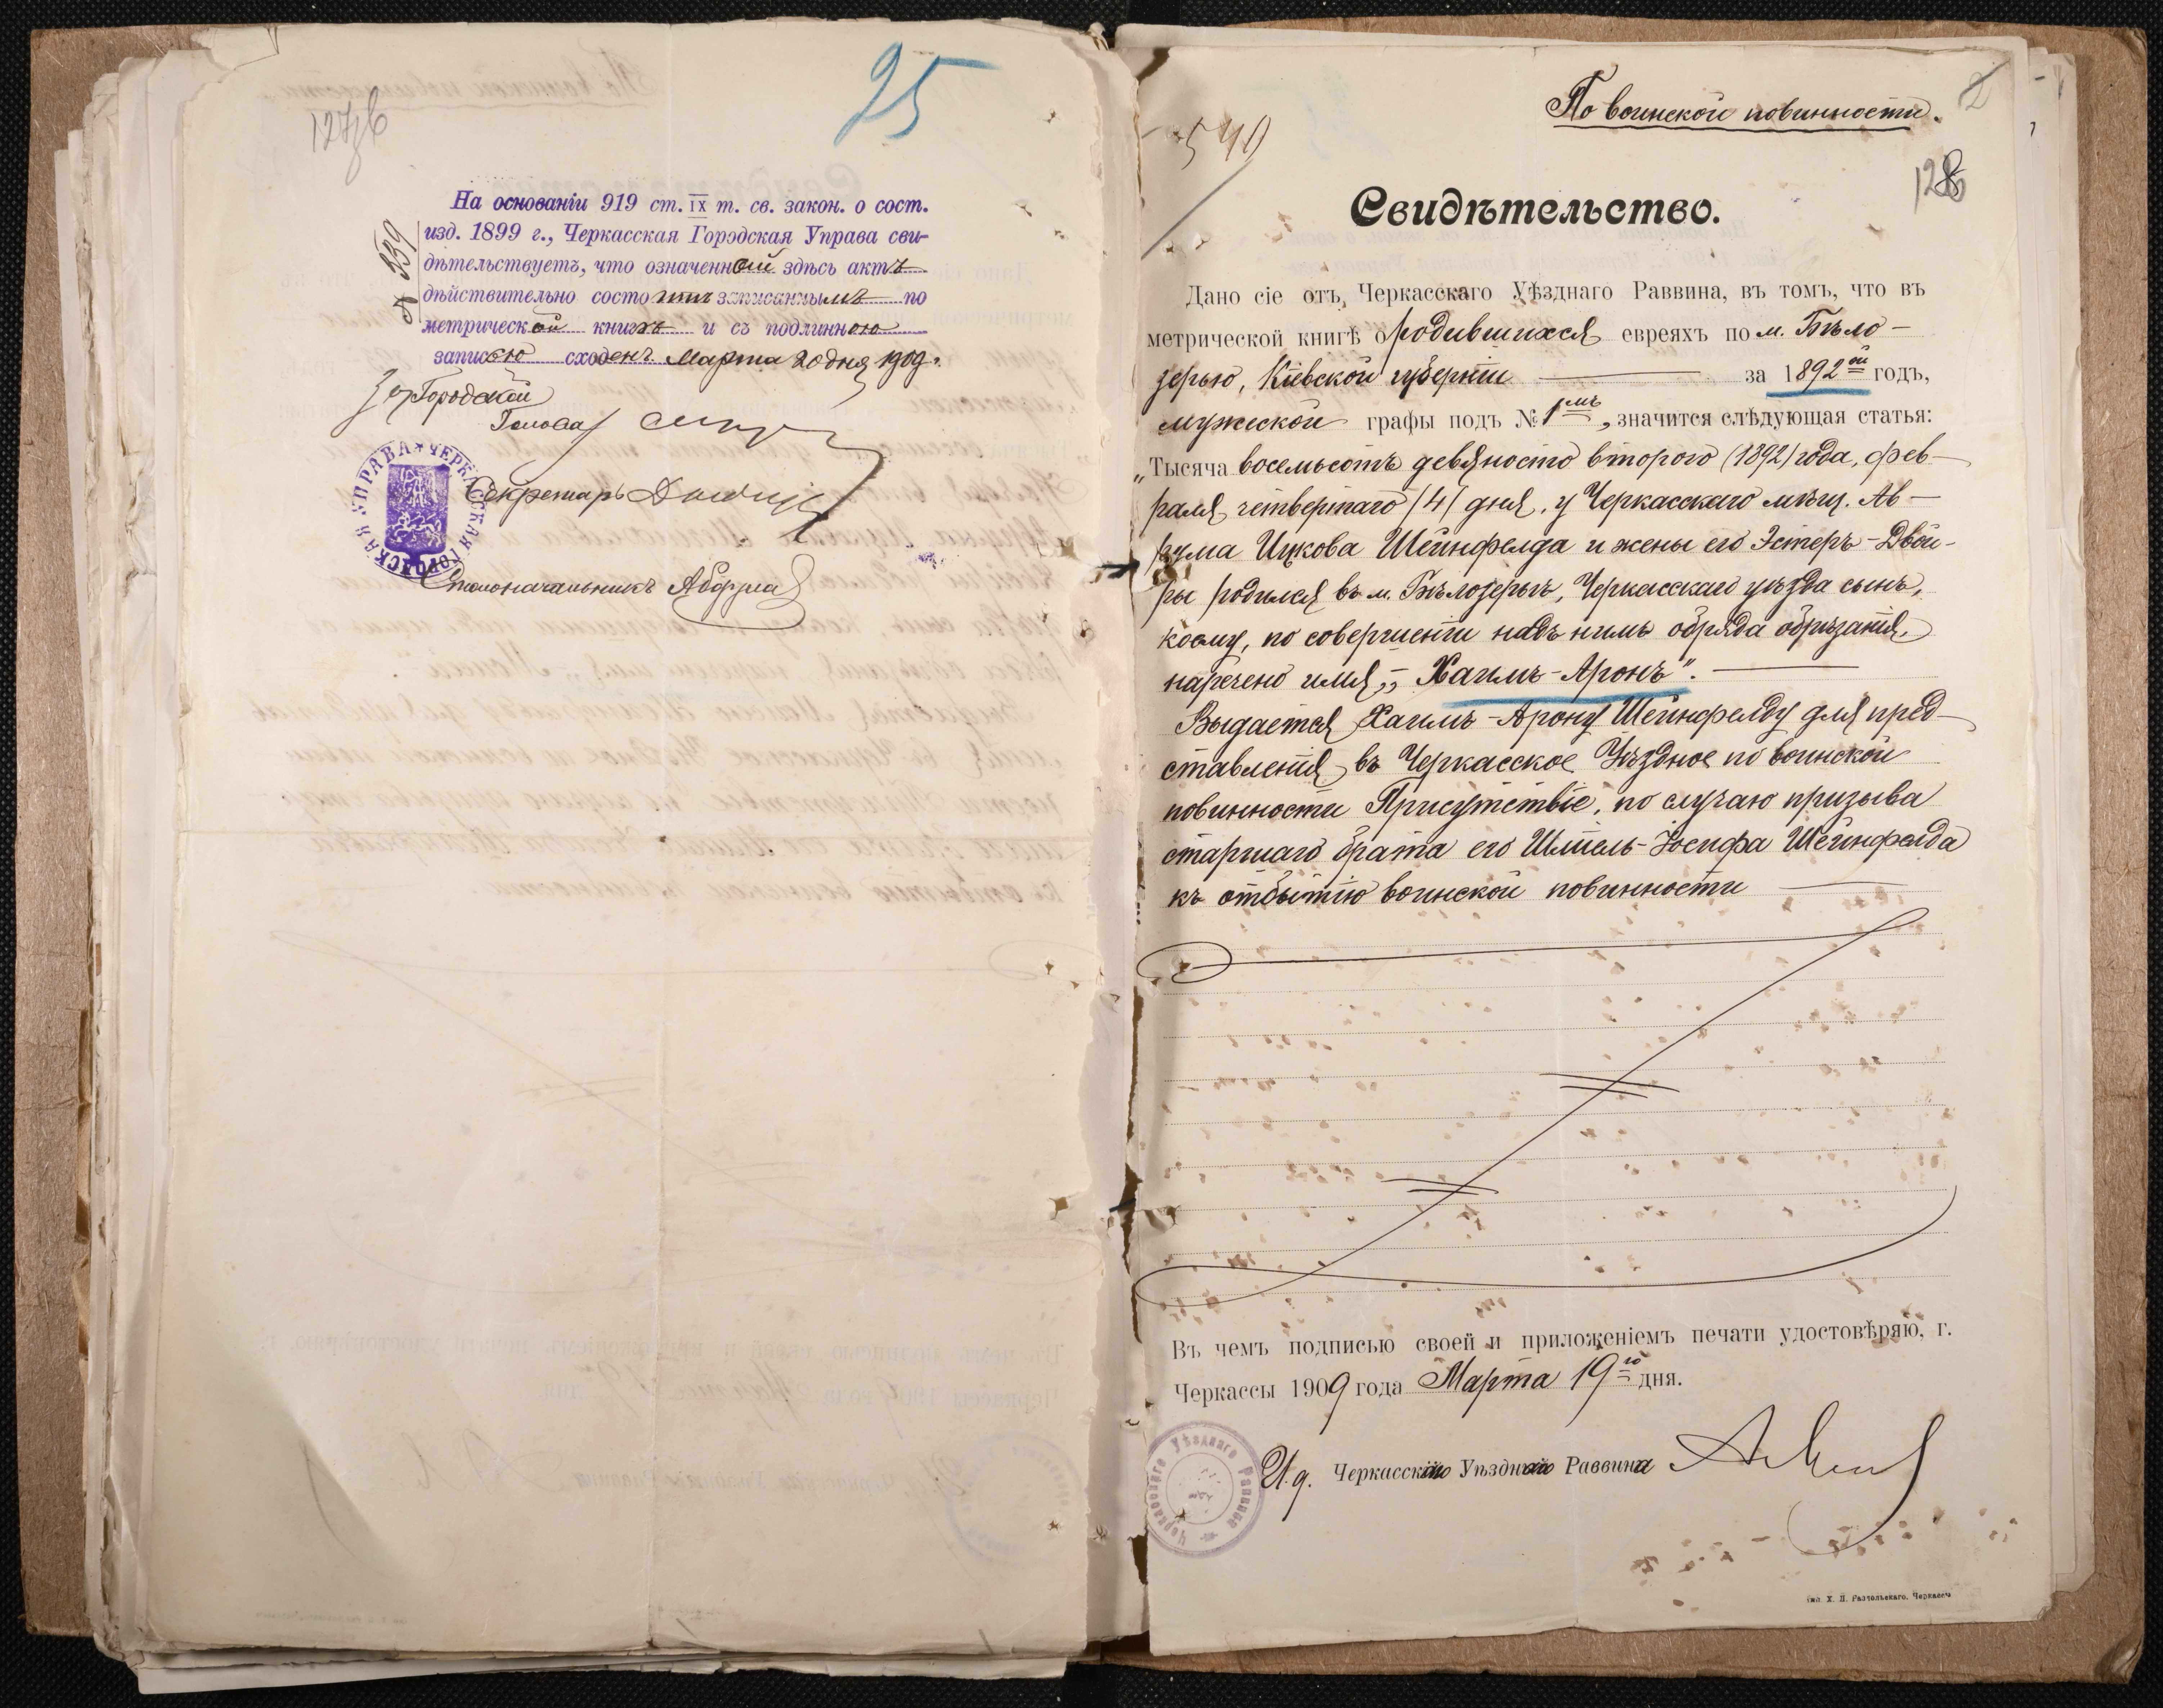 25
На основаніи 919 ст. IX т. св. закон. о сост.
изд. 1899 г., Черкасская Городская Управа сви-
дѣтельствуетъ, что означенный здѣсь актъ
дѣйствительно состоитъ записаннымъ по
метрической книгѣ и съ подлинною
записью сходенъ Марта 20 дня 1909 г.
№ 559
За Городской
Голова
Секретарь
Столоначальникъ
ЧЕРКАССКАЯ ГОРОДСКАЯ УПРАВА
По воинской повинности.
2
540
128
Свидѣтельство.
Дано сіе отъ Черкасскаго Уѣзднаго Раввина, въ томъ, что въ
метрической книгѣ о родившихся евреяхъ по м. Бѣло-
зерью, Кіевской губерніи за 1892ой годъ,
мужской графы подъ № 1мъ, значится слѣдующая статья:
„Тысяча восемьсотъ девяносто второго (1892) года, фев-
раля четвертаго /4/ дня, у Черкасскаго мѣщ. Ав-
рума Ицкова Шейнфелда и жены его Эстеръ-Двой-
ры родился въ м. Бѣлозерьѣ, Черкасскаго уѣзда сынъ,
коему, по совершеніи надъ нимъ обряда обрѣзанія,
наречено имя „Хаимъ-Аронъ".
Выдается Хаимъ-Арону Шейнфелду для пред-
ставленія въ Черкасское Уѣздное по воинской
повинности Присутствіе, по случаю призыва
старшаго брата его Шміель-Іосифа Шейнфелда
къ отбытію воинской повинности
Въ чемъ подписью своей и приложеніемъ печати удостовѣряю, г.
Черкассы 1909 года Марта 19го дня.
И. д. Черкасскаго Уѣзднаго Раввина
Черкасскаго Уѣзднаго Раввина